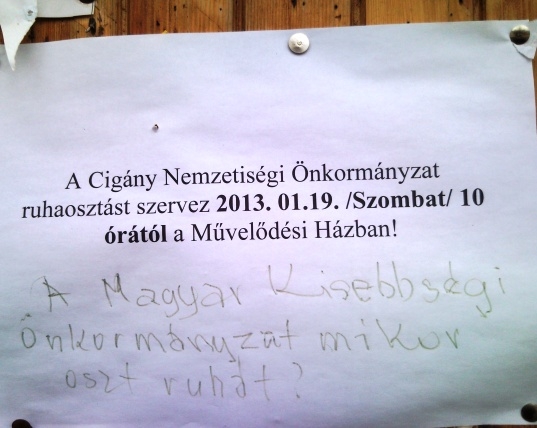 A Cigány Nemzetiségi Önkormányzat
ruhaosztást szervez 2013. 01.19. /Szombat/ 10
órától a Művelődési Házban!
A Magyar Kisebbségi
Önkormányzat mikor
oszt ruhát?